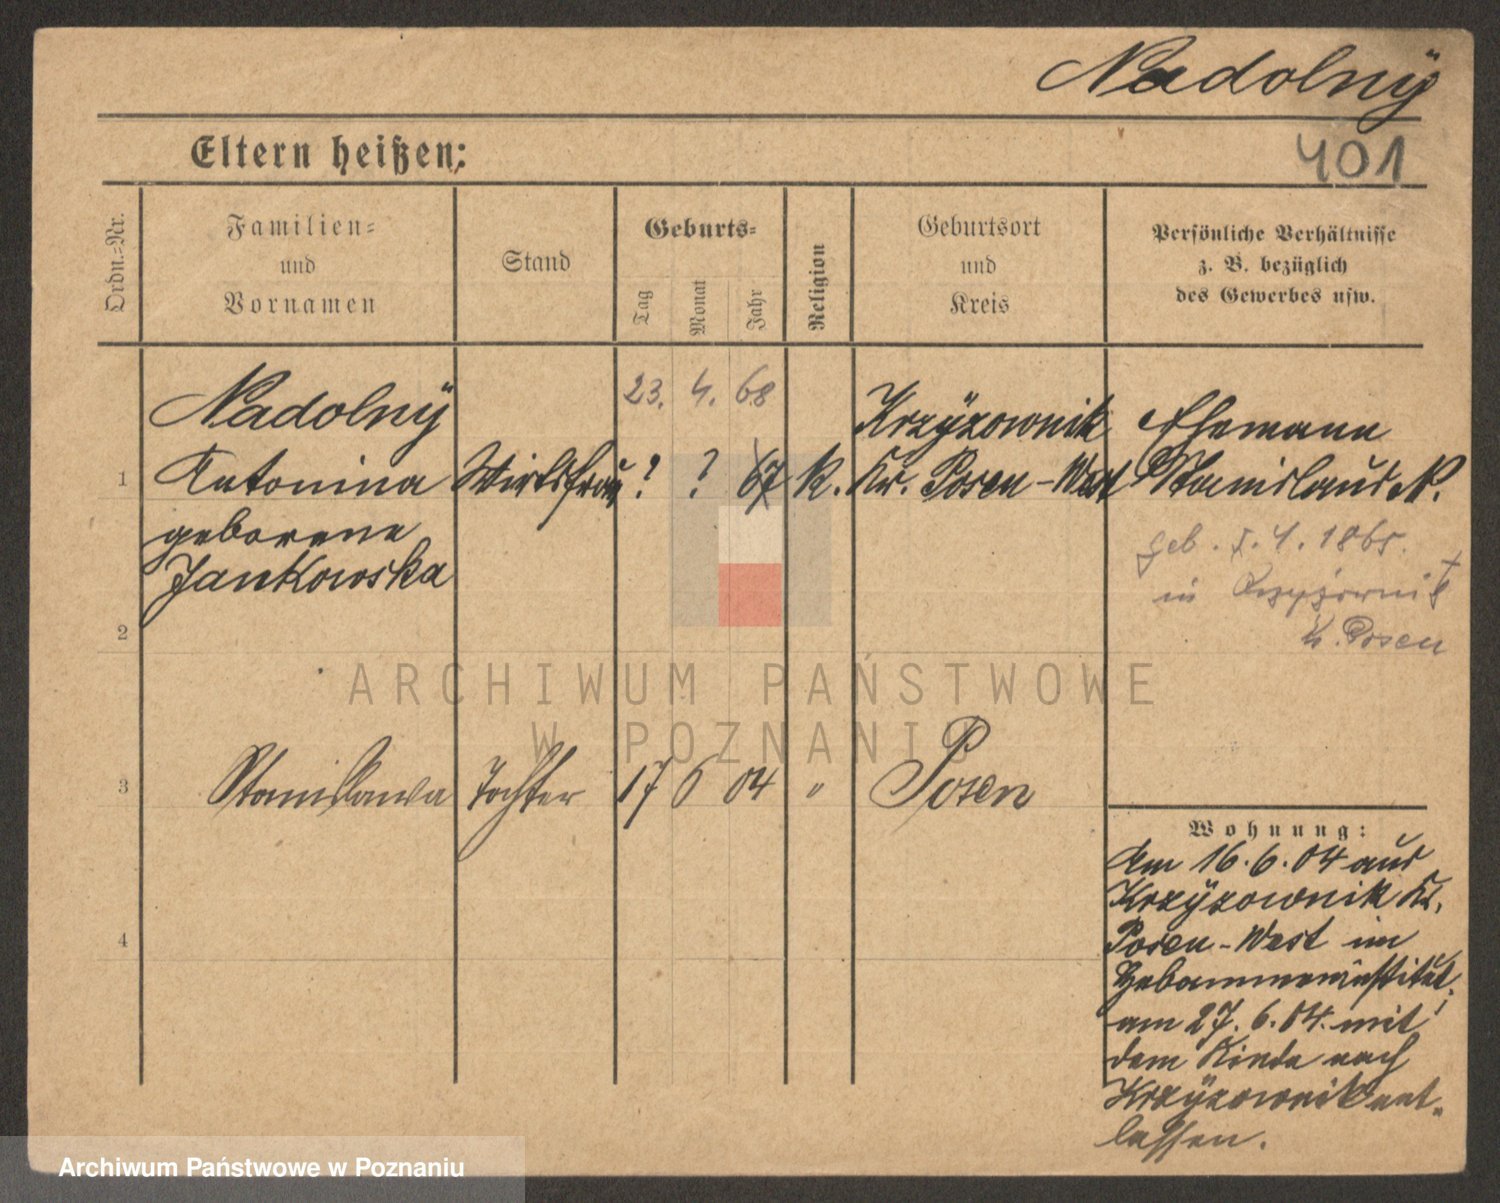 Nadolnÿ
401
Eltern heißen:
Ordn.-Nr.
Familien-
und
Vornamen
Stand
Geburts-
Tag
Monat
Jahr
Religion
Geburtsort
und
Kreis
Persönliche Verhältnisse
z. B. bezüglich
des Gewerbes usw.
23. 4. 68
Nadolnÿ
Krzÿzownik
Ehemann
1
Antonina
Wirtsfrau
? ? 67
k.
Kr. Posen-West
Stanislaus N.
geborene
Jankowska
geb. 5. 4. 1865.
in Krzyżownik
Kr. Posen
2
ARCHIWUM PAŃSTWOWE
W POZNANIU
3
Stanislawa
Tochter
17 6 04
"
Posen
Wohnung:
Am 16.6.04 aus
Krzÿzownik Kr.
Posen-West im
Hebammeninstitut,
am 27.6.04. mit
dem Kinde nach
Krzÿzownik ent-
lassen.
4
Archiwum Państwowe w Poznaniu